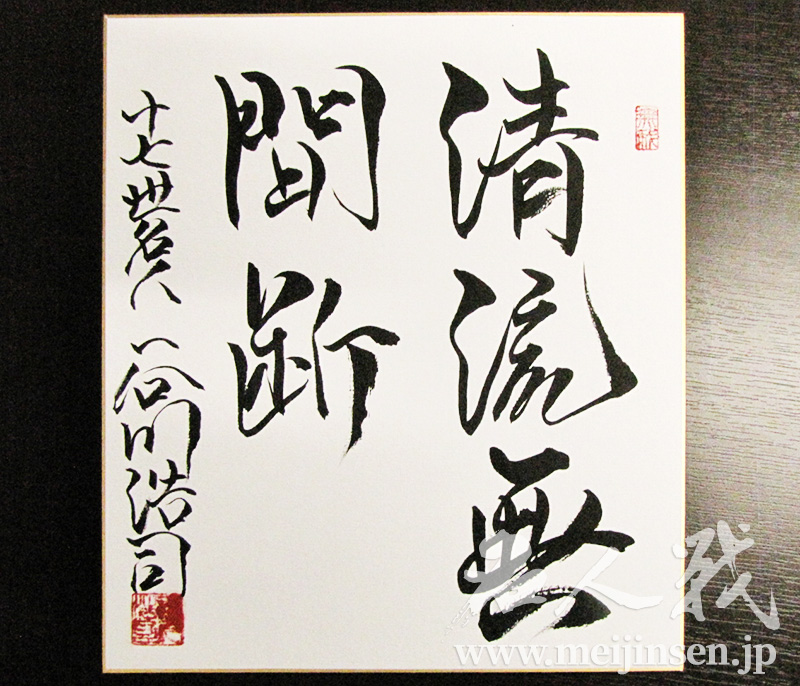 清流無
間断
十七世名人 谷川浩司
名人戦
www.meijinsen.jp